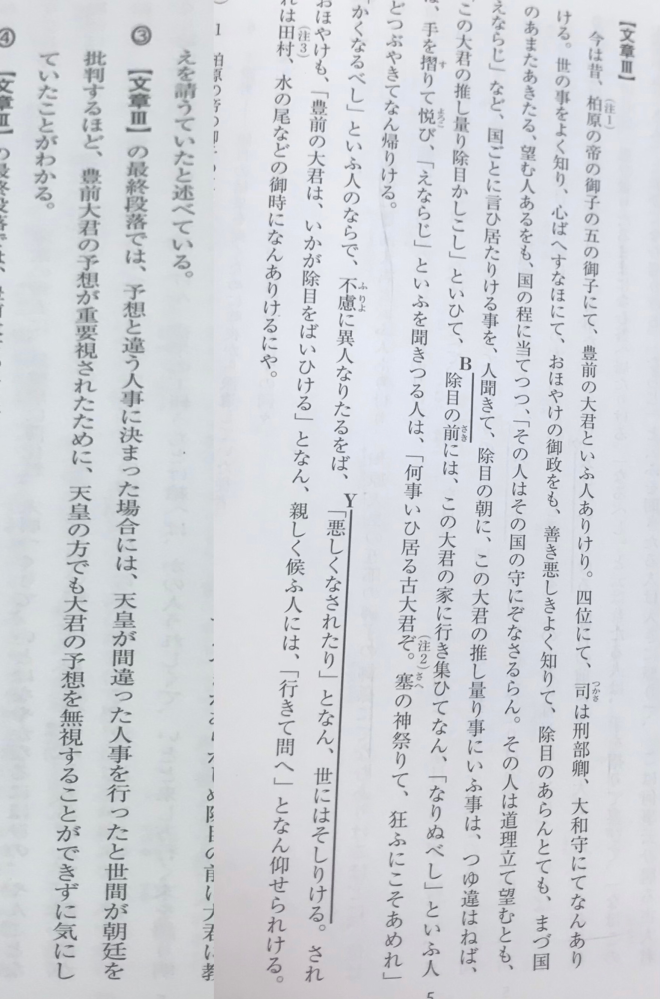 【文章Ⅲ】
今は昔、(注1)柏原の帝の御子の五の御子にて、豊前の大君といふ人ありけり。四位にて、司は刑部卿、大和守にてなんあり
ける。世の事をよく知り、心ばへすなほにて、おほやけの御政をも、善き悪しきよく知りて、除目のあらんとても、まづ国
のあまたあきたる、望む人あるをも、国の程に当てつつ、「その人はその国の守にぞなさるらん。その人は道理立て望むとも、
えならじ」など、国ごとに言ひ居たりける事を、人聞きて、除目の朝に、この大君の推し量り事にいふ事は、つゆ違はねば、
この大君の推し量り除目かしこし」といひて、B除目の前には、この大君の家に行き集ひてなん、「なりぬべし」といふ人
は、手を摺りて悦び、「えならじ」といふを聞きつる人は、「何事いひ居る古大君ぞ。(注2)塞の神祭りて、狂ふにこそあめれ」
どつぶやきてなん帰りける。
かくなるべし」といふ人のならで、不慮に異人なりたるをば、Y「悪しくなされたり」となん、世にはそしりける。され
おほやけも、「豊前の大君は、いかが除目をばいひける」となん、親しく候ふ人には、「行きて問へ」となん仰せられける。
(注3)れは田村、水の尾などの御時になんありけるにや。
5
えを請うていたと述べている。
③ 【文章Ⅲ】の最終段落では、予想と違う人事に決まった場合には、天皇が間違った人事を行ったと世間が朝廷を
批判するほど、豊前大君の予想が重要視されたために、天皇の方でも大君の予想を無視することができずに気にし
ていたことがわかる。
④ 【文章Ⅲ】の最終段落では、